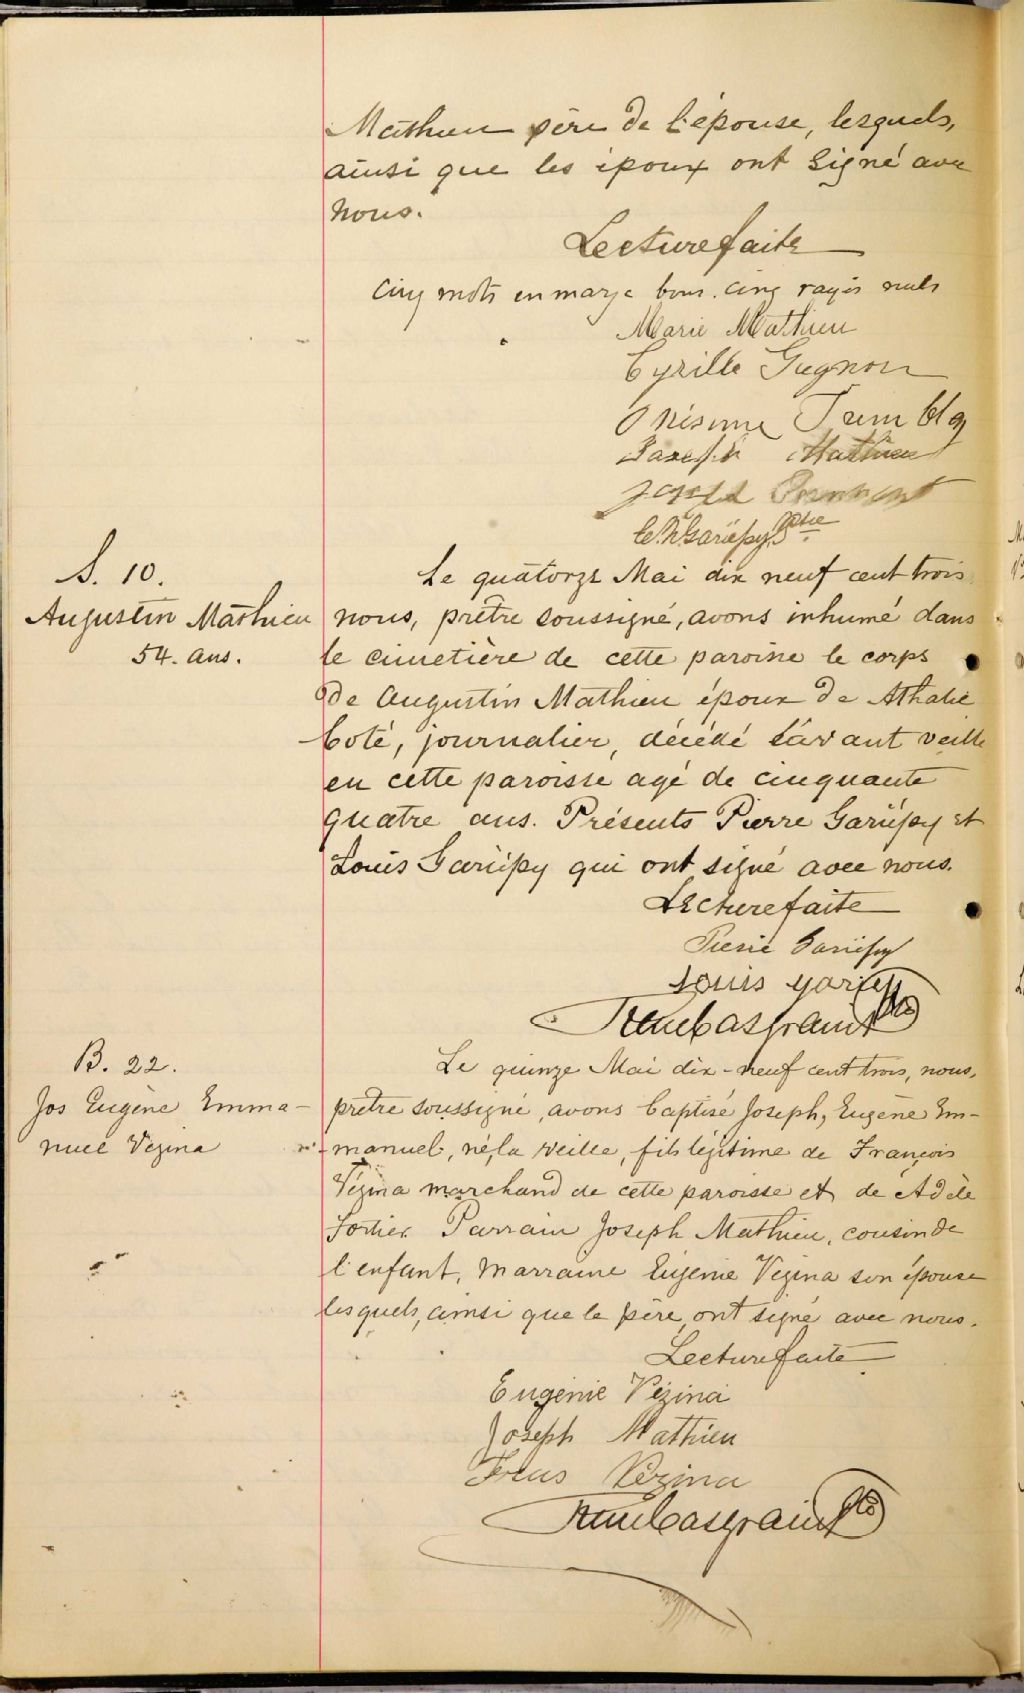 Mathieu père de l'épouse, lesquels,
ainsi que les époux ont signé avec
nous.
Lecture faite
Cinq mots en marge bons. cinq rayés nuls
Marie Mathieu
Cyrille Gagnon
Onésime Tremblay
Joseph Mathieu
Joseph
Ptre
S. 10.
Augustin Mathieu
54. ans.
Le quatorze Mai dix neuf cent trois
nous, prêtre soussigné, avons inhumé dans
le cimetière de cette paroisse le corps
de Augustin Mathieu époux de Athalie
Coté, journalier, décédé l'avant veille
en cette paroisse agé de cinquante
quatre ans. Présents Pierre Gariépy et
Louis Gariépy qui ont signé avec nous.
Lecture faite
Pierre Gariépy
Louis Gariépy
Casgrain Ptre
B. 22.
Jos Eugène Emma-
nuel Vézina
Le quinze Mai dix-neuf cent trois, nous,
prêtre soussigné, avons baptisé Joseph, Eugène Em-
manuel, né, la veille, fils légitime de François
Vézina marchand de cette paroisse et de Adèle
Fortier. Parrain Joseph Mathieu, cousin de
l'enfant, marraine Eugénie Vézina son épouse
lesquels, ainsi que le père, ont signé avec nous.
Lecture faite
Eugénie Vézina
Joseph Mathieu
Frcus Vézina
Casgrain Ptre